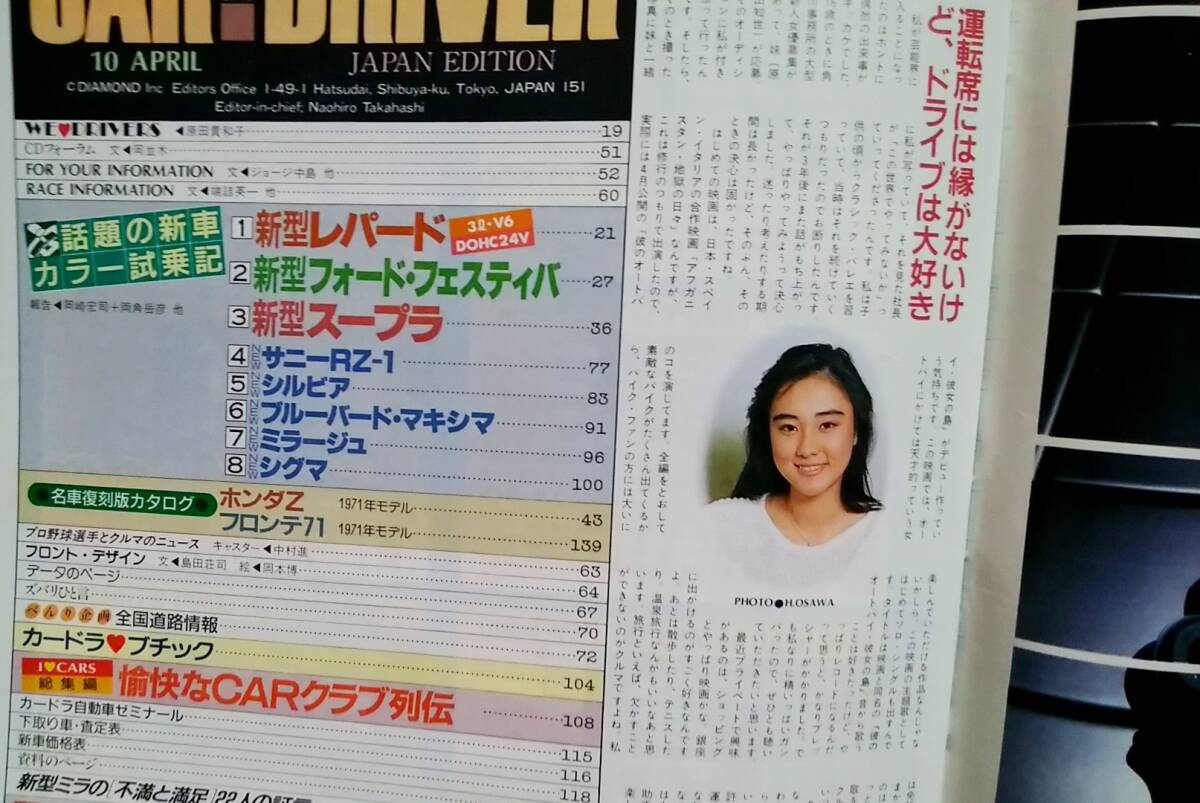 CAR and DRIVER
10 APRIL
JAPAN EDITION
©DIAMOND Inc Editors Office 1-49-1 Hatsudai, Shibuya-ku, Tokyo, JAPAN 151
Editor-in-chief; Naohiro Takahashi
WE♥DRIVERS ◀原田貴和子 19
CDフォーラム 文◀岡並木 51
FOR YOUR INFORMATION 文◀ジョージ中島 他 52
RACE INFORMATION 文◀端詰英一 他 60
話題の新車
カラー試乗記
報告◀岡崎宏司+両角岳彦 他
1 新型レパード 3ℓ・V6 DOHC24V 21
2 新型フォード・フェスティバ 27
3 新型スープラ 36
4 NEW サニーRZ-1 77
5 NEW シルビア 83
6 NEW ブルーバード・マキシマ 91
7 NEW ミラージュ 96
8 NEW シグマ 100
●名車復刻版カタログ●
ホンダZ 1971年モデル 43
フロンテ71 1971年モデル 139
プロ野球選手とクルマのニュース キャスター◀中村進
フロント・デザイン 文◀島田荘司 絵◀岡本博 63
データのページ 64
ズバリひと言 67
べんり企画 全国道路情報 70
カードラ♥ブチック 72
I♥CARS
総集編
104
愉快なCARクラブ列伝 108
カードラ自動車ゼミナール
下取り車・査定表 115
新車価格表 116
資料のページ 118
新型ミラの「不満と満足」22人の証言
運転席には縁がないけ
ど、ドライブは大好き
私が芸能界に
入ることになっ
たのはホントに
に私が写っていて、それを見た社長
が「この世界でやってみないか」っ
ていってくださったんです。私は子
供の頃からクラシック・バレエを習
っていて、当時はそれを続けていく
つもりだったのでお断りしたんです
それが3年後にまた話がもち上がっ
て、やっぱりやってみようって決心
しました。迷ったり考えたりする期
間は長かったけど、そのぶん、その
ときの決心は固かったですね。
はじめての映画は、日本・スペイ
ン・イタリアの合作映画「アフガニ
スタン・地獄の日々」なんですが、
これは修行のつもりで出演したので、
実際には4月公開の「彼のオートバ
イ・彼女の島」がデビュー作ってい
う気持ちです。この映画では、オー
トバイにかけては天才的っていう女
のコを演じてます。全編をとおして
素敵なバイクがたくさん出てくるか
ら、バイク・ファンの方には大いに
PHOTO●H.OSAWA
楽しんでいただける作品なんじゃな
いかしら。この映画の主題歌として
はじめてソロ・シングルも出すんで
す。タイトルは映画と同名の「彼の
オートバイ・彼女の島」。昔から歌う
ことは好きだったけど、や
っぱりレコードになるんだ
って思うと、かなりプレッ
シャーがかかりました。で
も私なりに精いっぱいガン
バったので、ぜひとも聴い
ていただきたいと思います
最近プライベートで興味
があるのは、ショッピング
とやっぱり映画かな。銀座
に出かけるのがすごく好きなんです
よ。あとは散歩したり、テニスした
り。温泉旅行なんかもいいなあと思
います。旅行といえば、欠かすこと
ができないのがクルマですよね。私